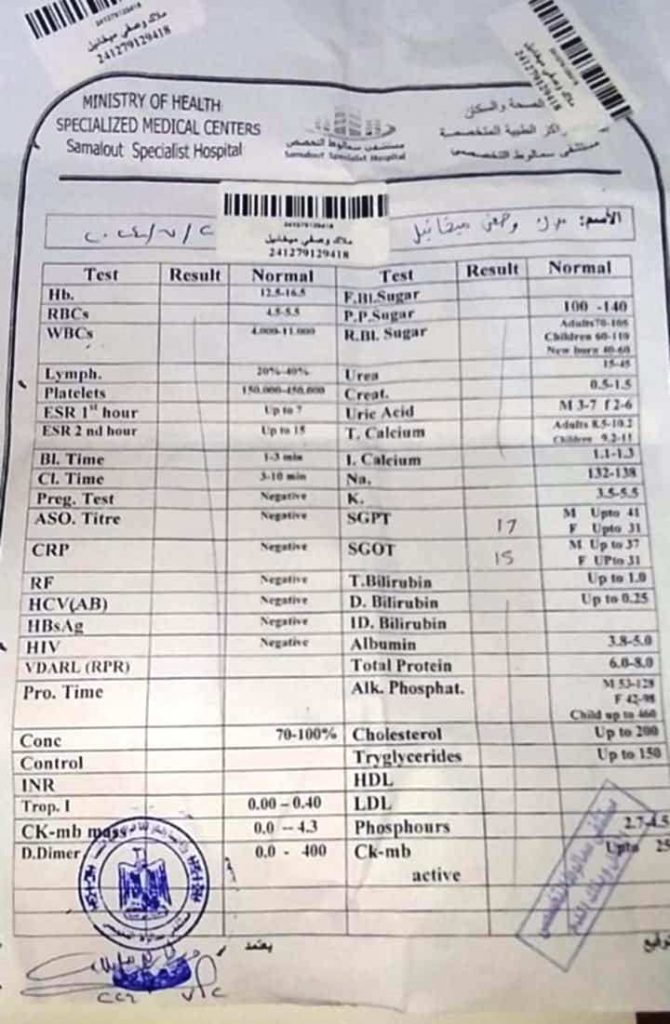 241279129418
ملاك وصفي ميخائيل
241279129418
241279129418
ملاك وصفي ميخائيل
241279129418
MINISTRY OF HEALTH
SPECIALIZED MEDICAL CENTERS
Samalout Specialist Hospital
مستشفى سمالوط التخصصي
Samalout Specialist Hospital
الصحة والسكان
المراكز الطبية المتخصصة
مستشفى سمالوط التخصصي
241279129418
ملاك وصفي ميخائيل
241279129418
الأسم: ملاك وصفي ميخائيل
٢٠٢٤/٧/٢
Test Result Normal Test Result Normal
Hb. 12.5-16.5 F.Bl.Sugar
RBCs 4.5-5.5 P.P.Sugar 100 -140
WBCs 4.000-11.000 R.Bl. Sugar Adults70-105
Children 60-110
New born 40-60
Lymph. 20%-40% Urea 15-45
Platelets 150.000-450.000 Creat. 0.5-1.5
ESR 1st hour Up to 7 Uric Acid M 3-7 f 2-6
ESR 2 nd hour Up to 15 T. Calcium Adults 8.5-10.2
Children 9.2-11
Bl. Time 1-3 min I. Calcium 1.1-1.3
Cl. Time 3-10 min Na. 132-138
Preg. Test Negative K. 3.5-5.5
ASO. Titre Negative SGPT 17 M Upto 41
F Upto 31
CRP Negative SGOT 15 M Up to 37
F UPto 31
RF Negative T.Bilirubin Up to 1.0
HCV(AB) Negative D. Bilirubin Up to 0.25
HBsAg Negative ID. Bilirubin
HIV Negative Albumin 3.8-5.0
VDARL (RPR) Total Protein 6.0-8.0
Pro. Time Alk. Phosphat. M 53-128
F 42-98
Child up to 460
Conc 70-100% Cholesterol Up to 200
Control Tryglycerides Up to 150
INR HDL
Trop. I 0.00 – 0.40 LDL
CK-mb mass 0.0 – 4.3 Phosphours 2.7-4.5
D.Dimer 0.0 - 400 Ck-mb Upto 25
active
مستشفى سمالوط التخصصي
يعتمد
توقيع